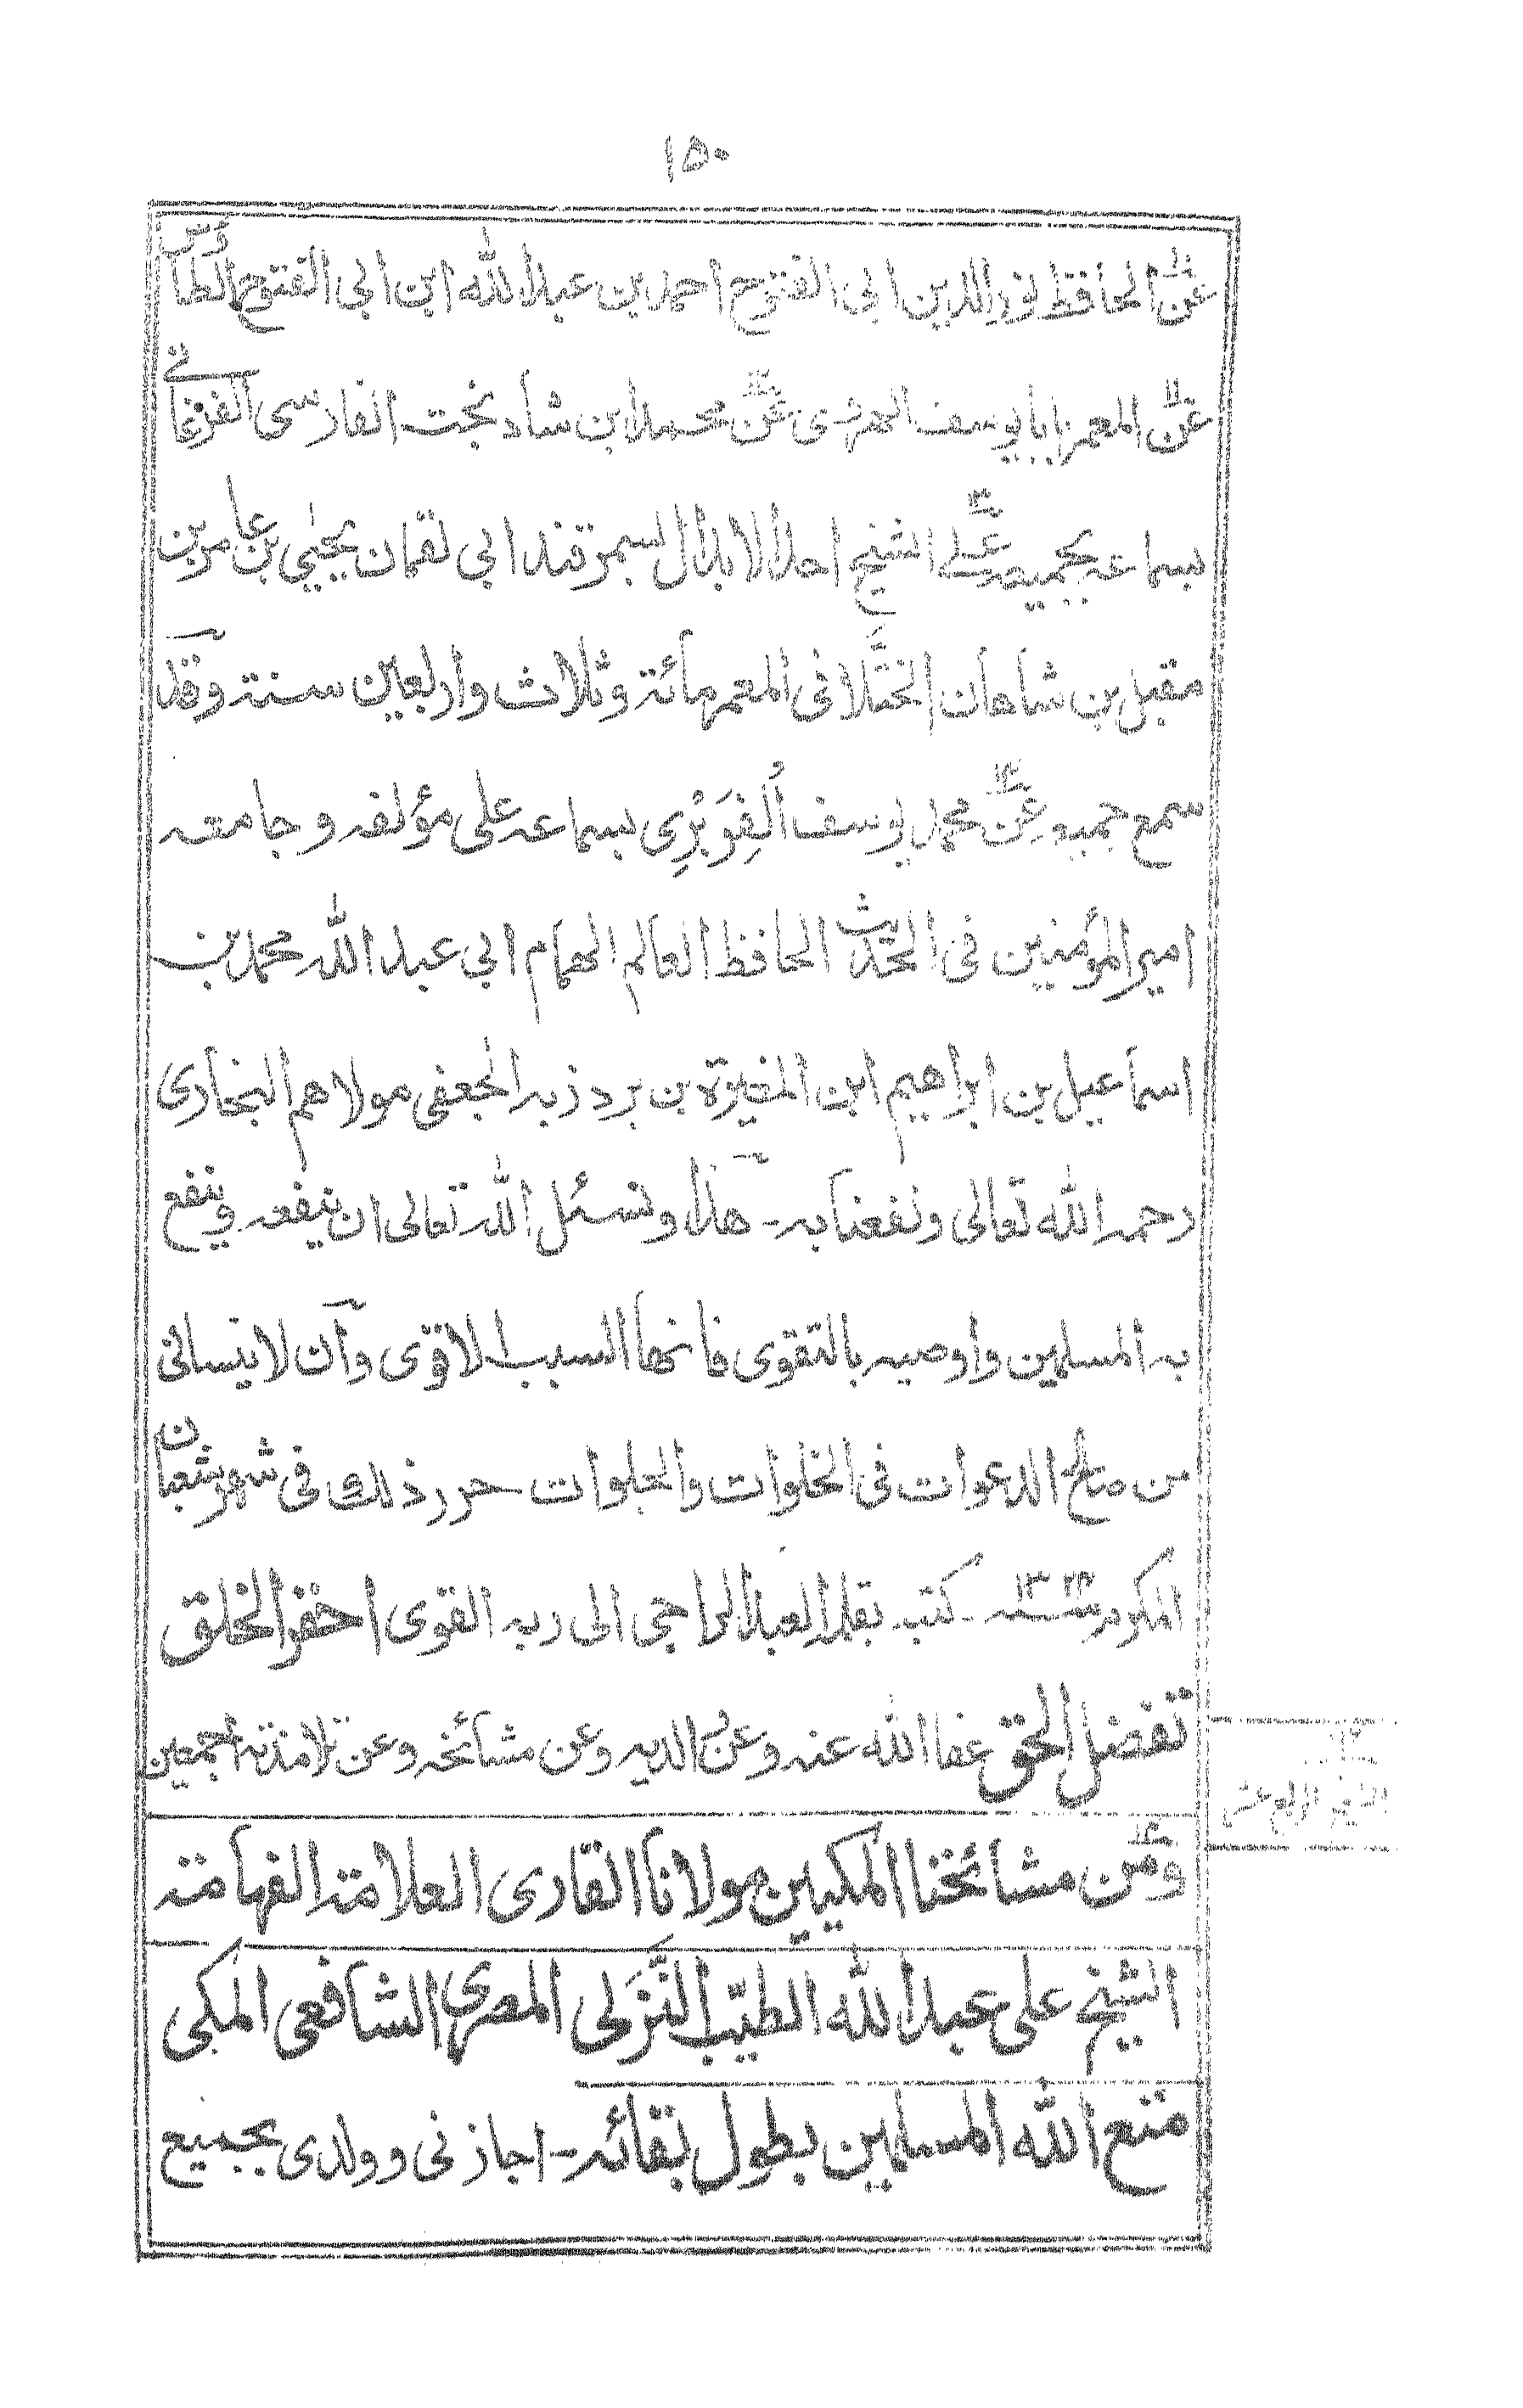 ۱۵۰
عن الحافظ نور الدين ابى الفتوح احمد بن عبد الله ابن ابى الفتوح الطاؤسى
عن المعمر بابا يوسف الهروى عن محمد ابن شاد بخت الفارسى الفرغانے
بسماعه بجميعه على الشيخ احد الابدال بسمرقند ابى لقمان يحيى بن عامر بن
مقبل بن شاهان الختلانى المعمر مائة وثلاث واربعين سنة وقد
سمع جميعه عن محمد يوسف الفِرَبْرِى بسماعه على مؤلفه وجامعه
امير المؤمنين فى الحديث الحافظ العالم الهمام ابى عبد الله محمد بن
اسماعيل بن ابراهيم ابن المغيرة بن بردزبه الجعفى مولاهم البخارى
رحمه الله تعالى ونفعنا به۔ هذا ونسئل الله تعالى ان ينفعه وينفع
به المسلمين واوصيه بالتقوى فانها السبب الاقوى وان لا ينسانى
من صالح الدعوات فى الخلوات والجلوات حرر ذلك فى شهر شعبان
المكرم سنه ۱۳۲۸۔ كتبه بقلم العبد الراجى الى ربه القوى احقر الخلق
تفضل الحق عفا الله عنه وعن والديه وعن مشائخه وعن تلامذته اجمعين
الشيخ الرابع عشر
ومن مشائخنا المكيين مولانا القارى العلامة الفهامة
الشيخ على عبد الله الطيّب التَّنزَلى المصرى الشافعى المكى
متع الله المسلمين بطول بقائه۔ اجازنى وولدى بجميع